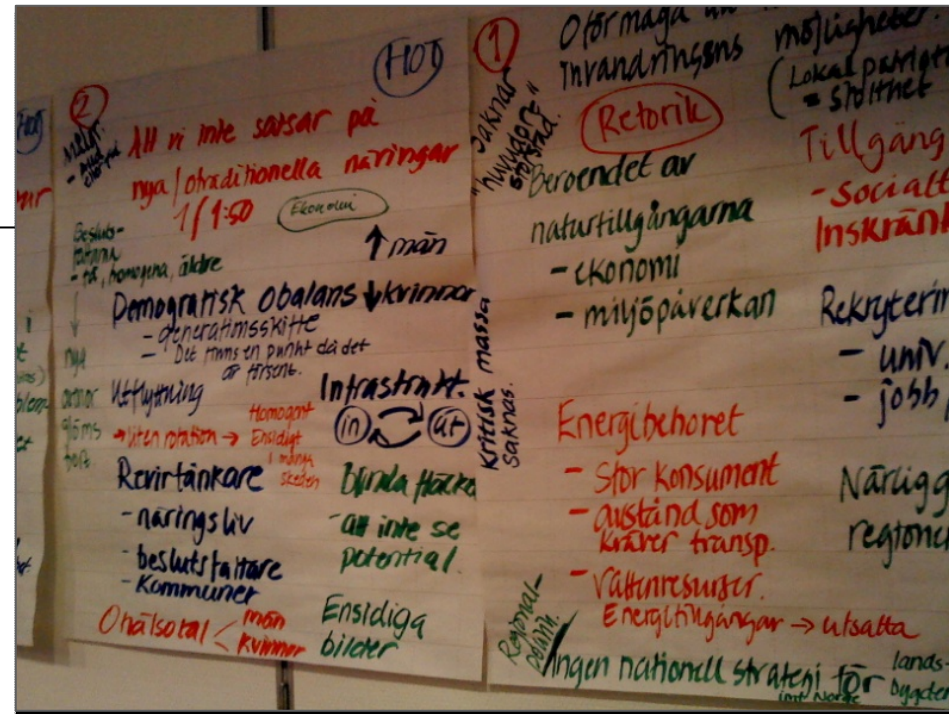 Hot
2
HOT
Att vi inte satsar på
nya/otraditionella näringar
1/1:50
Ekonomi
Besluts-
fattarna
- få, homogena, äldre
nya
glöms
bort
↑ män
Demografisk obalans ↓ kvinnor
- generationsskifte
- Det finns en punkt då det
är försent.
Utflyttning
→ liten rotation →
Homogent
Ensidigt
i många
skeden
Infrastrukt.
in
ut
Revirtänkare
- näringsliv
- beslutsfattare
- Kommuner
Blinda fläcka
- att inte se
potential.
Ohälsotal < män
< kvinnor
Ensidiga
bilder
1
Saknar
"huvudort"
storstad.
Oförmåga
invandringens
möjligheter.
(Lokalpatrioti
= stolthet
Retorik
Beroendet av
naturtillgångarna
- ekonomi
- miljöpåverkan
Tillgäng
- socialt
Inskränk
Kritisk massa
saknas.
Rekryterin
- univ.
- jobb
Energibehovet
- Stor konsument
- avstånd som
kräver transp.
- vattenresurser.
Energitillgångar → utsatta
Närligg
regione
Regional-
politik.
Ingen nationell strategi för lands-
bygden
imt Norge